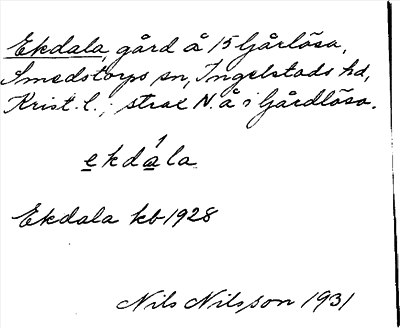 Ekdala, gård å 15 Gårlösa,
Smedstorps sn, Ingelstads hd,
Krist. l.; strax N. å i Gårdlösa.
ekdàla
Ekdala kb 1928
Nils Nilsson 1931